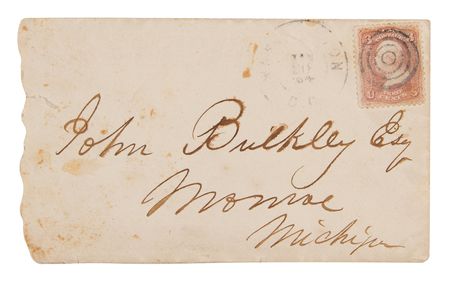 John Bulkley Esq
Monroe
Michigan